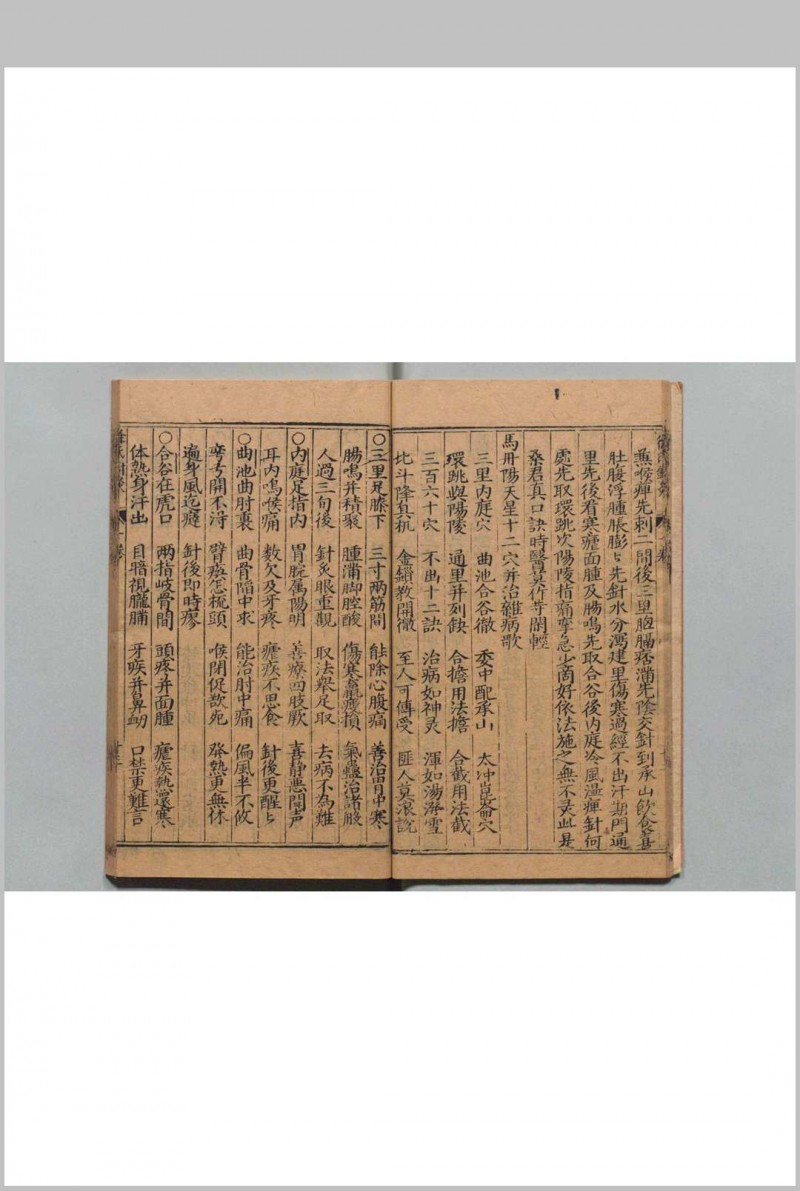 兼喉痺先刺二間後三里胸膈痞滿先陰交針到承山飲食喜
肚腹浮腫脹膨〻先針水分瀉建里傷寒過經不出汗期門通
里先後看寒瘧面腫及腸鳴先取合谷後內庭冷風濕痺針何
處先取環跳次陽陵指痛孿急少商好依法施之無不灵此是
桑君真口訣時醫莫作等閑輕
馬丹陽天星十二穴并治雜病歌
三里內庭穴 曲池合谷徹 委中配承山 太冲崑崙穴
環跳與陽陵 通里并列缺 合擔用法擔 合截用法截
三百六十穴 不出十二訣 治病如神灵 渾如湯潑雪
北斗降真机 金鎖教開徹 至人可傳受 匪人莫浪說
○三里足膝下 三寸兩筋間 能除心腹痛 善治胃中寒
腸鳴并積聚 腫滿脚脛酸 傷寒羸瘦損 氣蠱治諸般
人過三旬後 針灸眼重觀 取法舉足取 去病不為難
○內庭足指內 胃脘属陽明 善療四肢厥 喜静悪聞声
耳內鳴喉痛 数欠及牙疼 瘧疾不思食 針後更醒〻
○曲池曲肘裏 曲骨陷中求 能治肘中痛 偏風半不收
弯弓開不得 臂痪怎梳頭 喉閉促欲死 發熱更無休
遍身風迄癧 針後即時瘳
○合谷在虎口 兩指岐骨間 頭疼并面腫 瘧疾熱還寒
体熱身汗出 目暗視朧 牙疾并鼻衄 口禁更難言